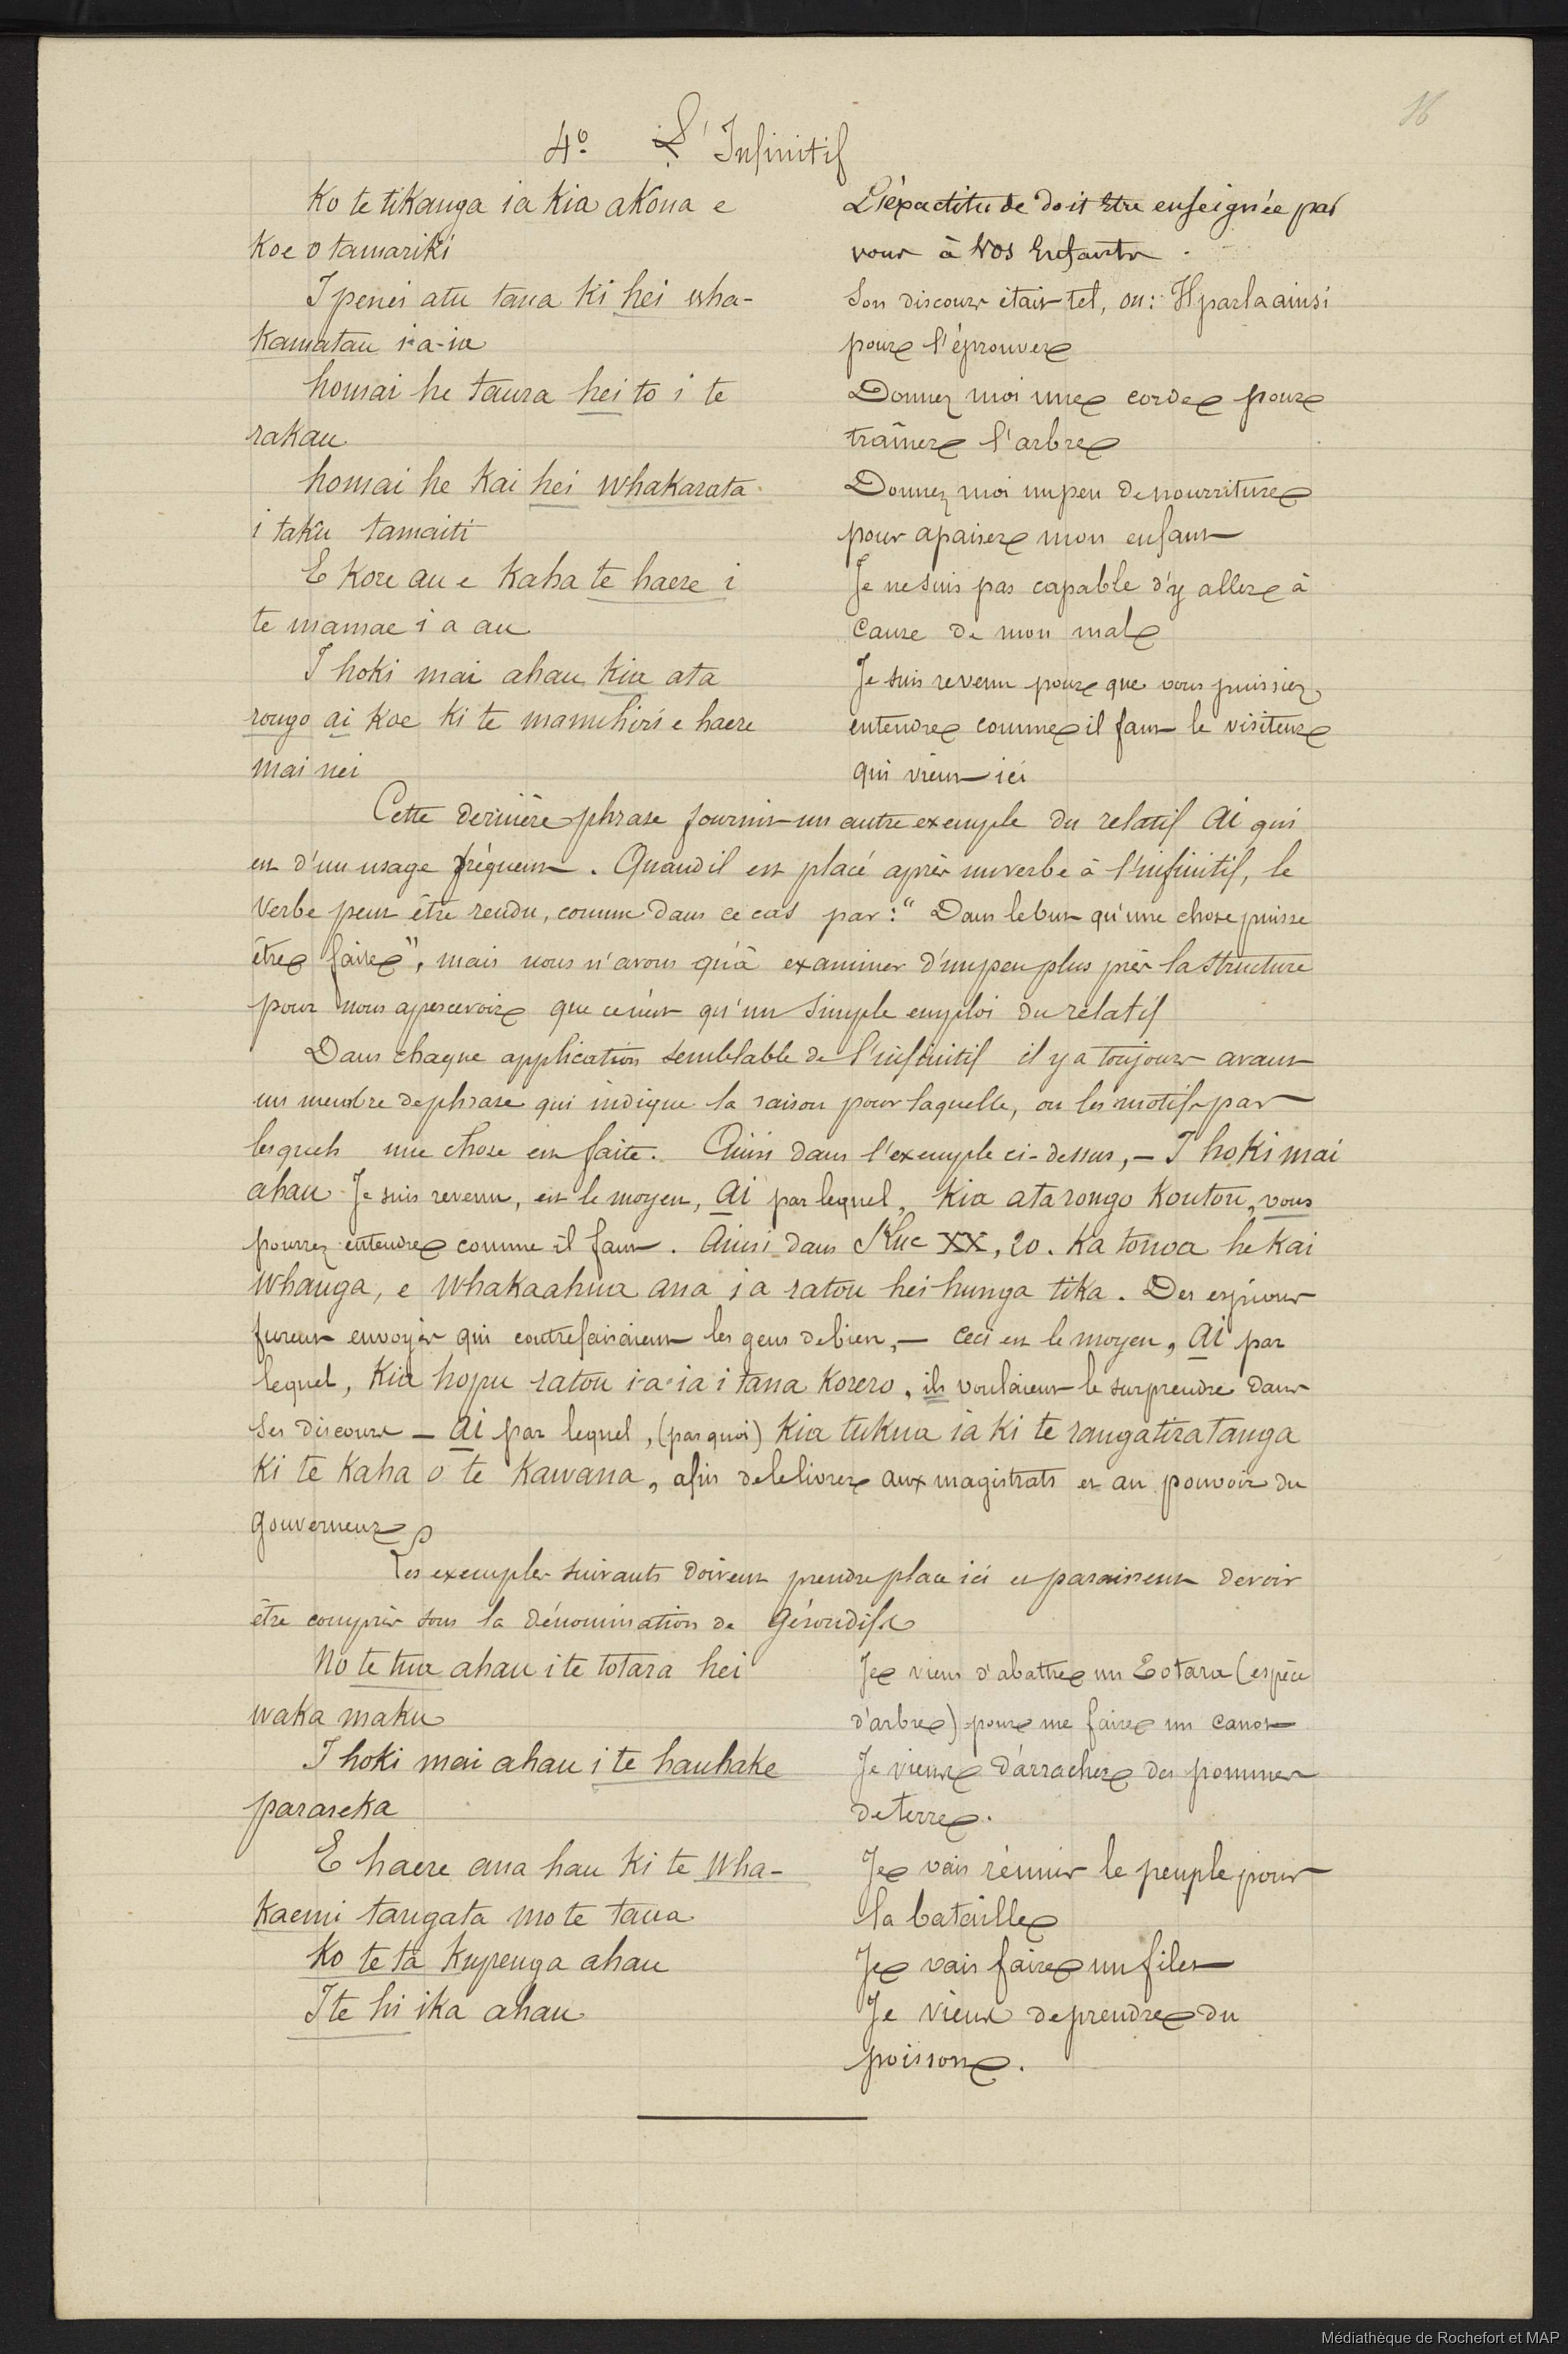 16
4º L'Infinitif
Ko te tikanga ia kia akona e
koe o tamariki
L'éxactitude doit être enseignée par
vous à vos Enfants.
I penei atu tana ki hei wha-
kamatau i-a-ia
Son discours était tel, ou: Il parla ainsi
pour l'éprouver
homai he taura hei to i te
rakau
Donnez moi une corde pour
traîner l'arbre
homai he kai hei whakarata
i taku tamaiti
Donnez moi un peu de nourriture
pour apaiser mon enfant
E kore au e kaha te haere i
te mamae i a au
Je ne suis pas capable d'y aller à
cause de mon mal
I hoki mai ahau kia ata
rongo ai koe ki te manuhiri e haere
mai nei
Je suis revenu pour que vous puissiez
entendre comme il faut le visiteur
qui vient ici
Cette dernière phrase fournit un autre exemple du relatif ai qui
est d'un usage fréquent. Quand il est placé après un verbe à l'infinitif, le
verbe peut être rendu, comme dans ce cas par: "Dans le but qu'une chose puisse
être faite", mais nous n'avons qu'à examiner d'un peu plus près la structure
pour nous apercevoir que ce n'est qu'un simple emploi du relatif
Dans chaque application semblable de l'infinitif il y a toujours avant
un membre de phrase qui indique la raison pour laquelle, ou les motifs par
lesquels une chose est faite. Ainsi dans l'exemple ci-dessus, — I hoki mai
ahau Je suis revenu, est le moyen, ai par lequel, kia ata rongo koutou, vous
pourrez entendre comme il faut. Ainsi dans Luc XX, 20. Ka tonoa he kai
whanga, e whakaahua ana i a ratou hei hunga tika. Des espions
furent envoyés qui contrefaisaient les gens de bien, — ceci est le moyen, ai par
lequel, kia hopu ratou i-a-ia i tana korero, ils voulaient le surprendre dans
ses discours — ai par lequel, (par quoi) kia tukua ia ki te rangatiratanga
ki te kaha o te kawana, afin de le livrer aux magistrats et au pouvoir du
gouverneur
Les exemples suivants doivent prendre place ici et paraissent devoir
être compris sous la dénomination de gérondifs
No te tua ahau i te totara hei
waka maku
Je viens d'abattre un Totara (espèce
d'arbre) pour me faire un canot
I hoki mai ahau i te hauhake
parareka
Je viens d'arracher des pommes
de terre.
E haere ana hau ki te wha-
kaemi tangata mo te taua
Je vais réunir le peuple pour
la bataille
Ko te ta kupenga ahau
Je vais faire un filet
I te hi ika ahau
Je viens de prendre du
poisson.
Médiathèque de Rochefort et MAP